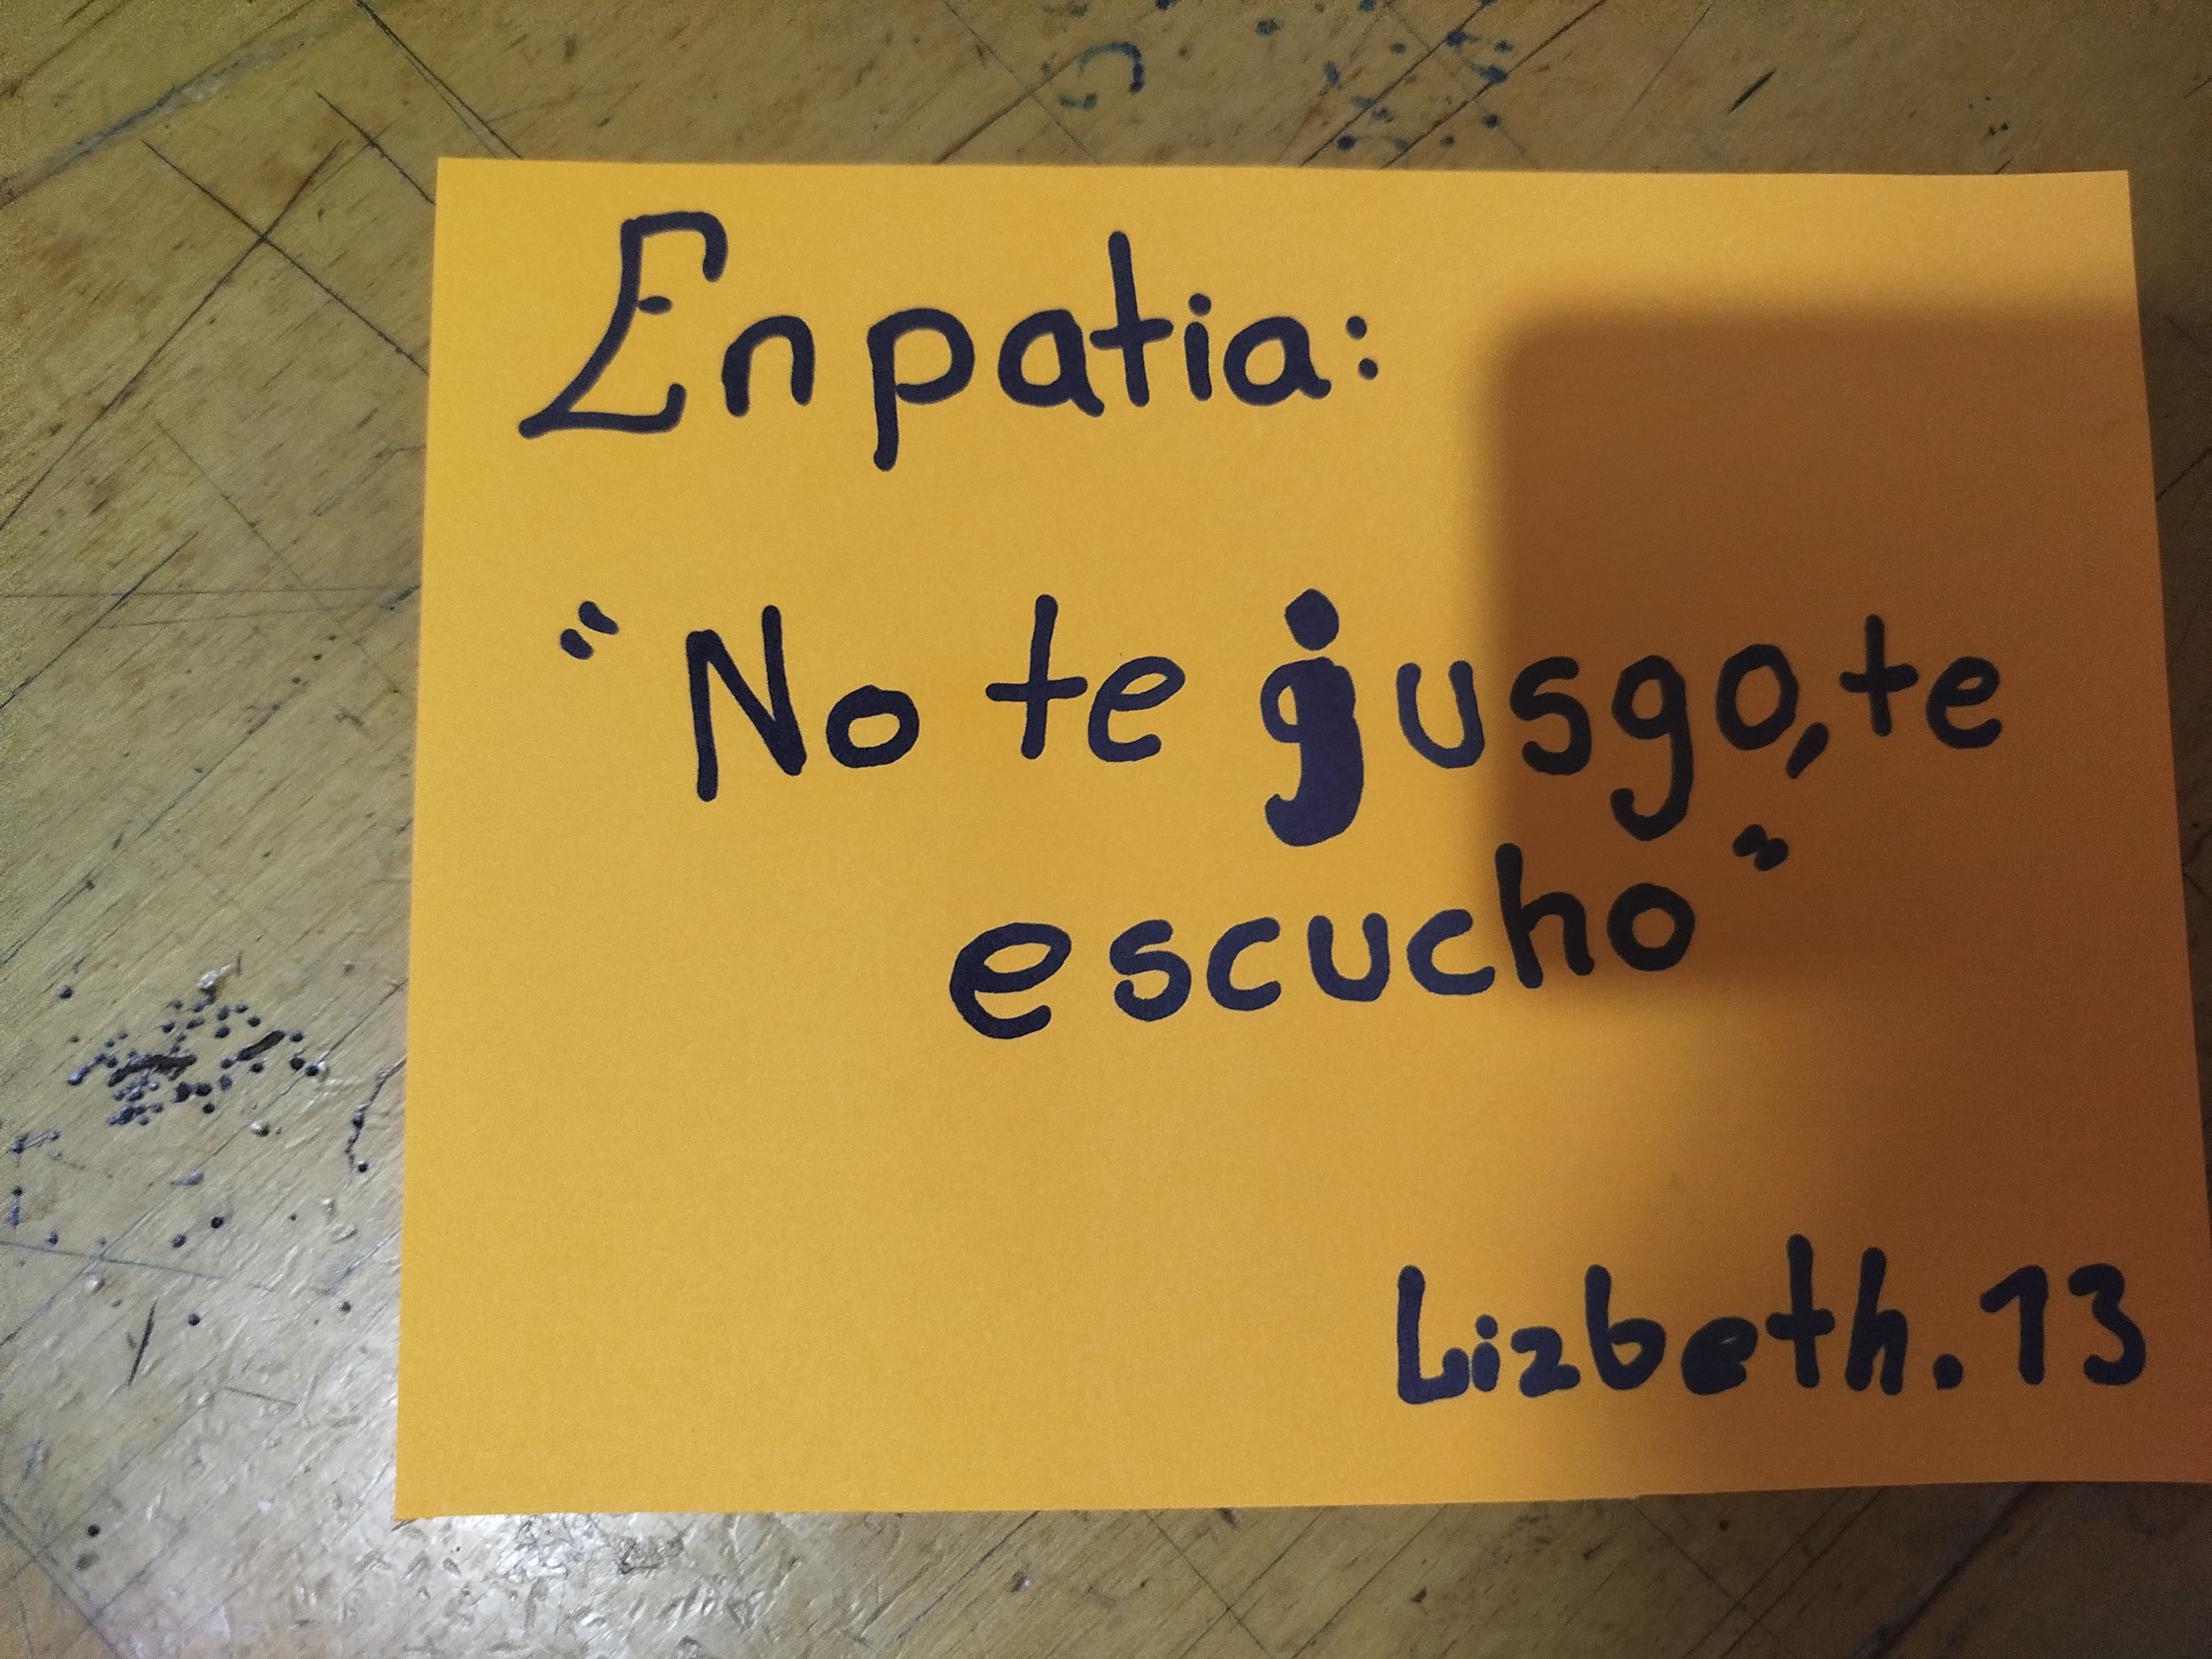 Enpatia:
"No te jusgo, te
escucho"
Lizbeth. 13